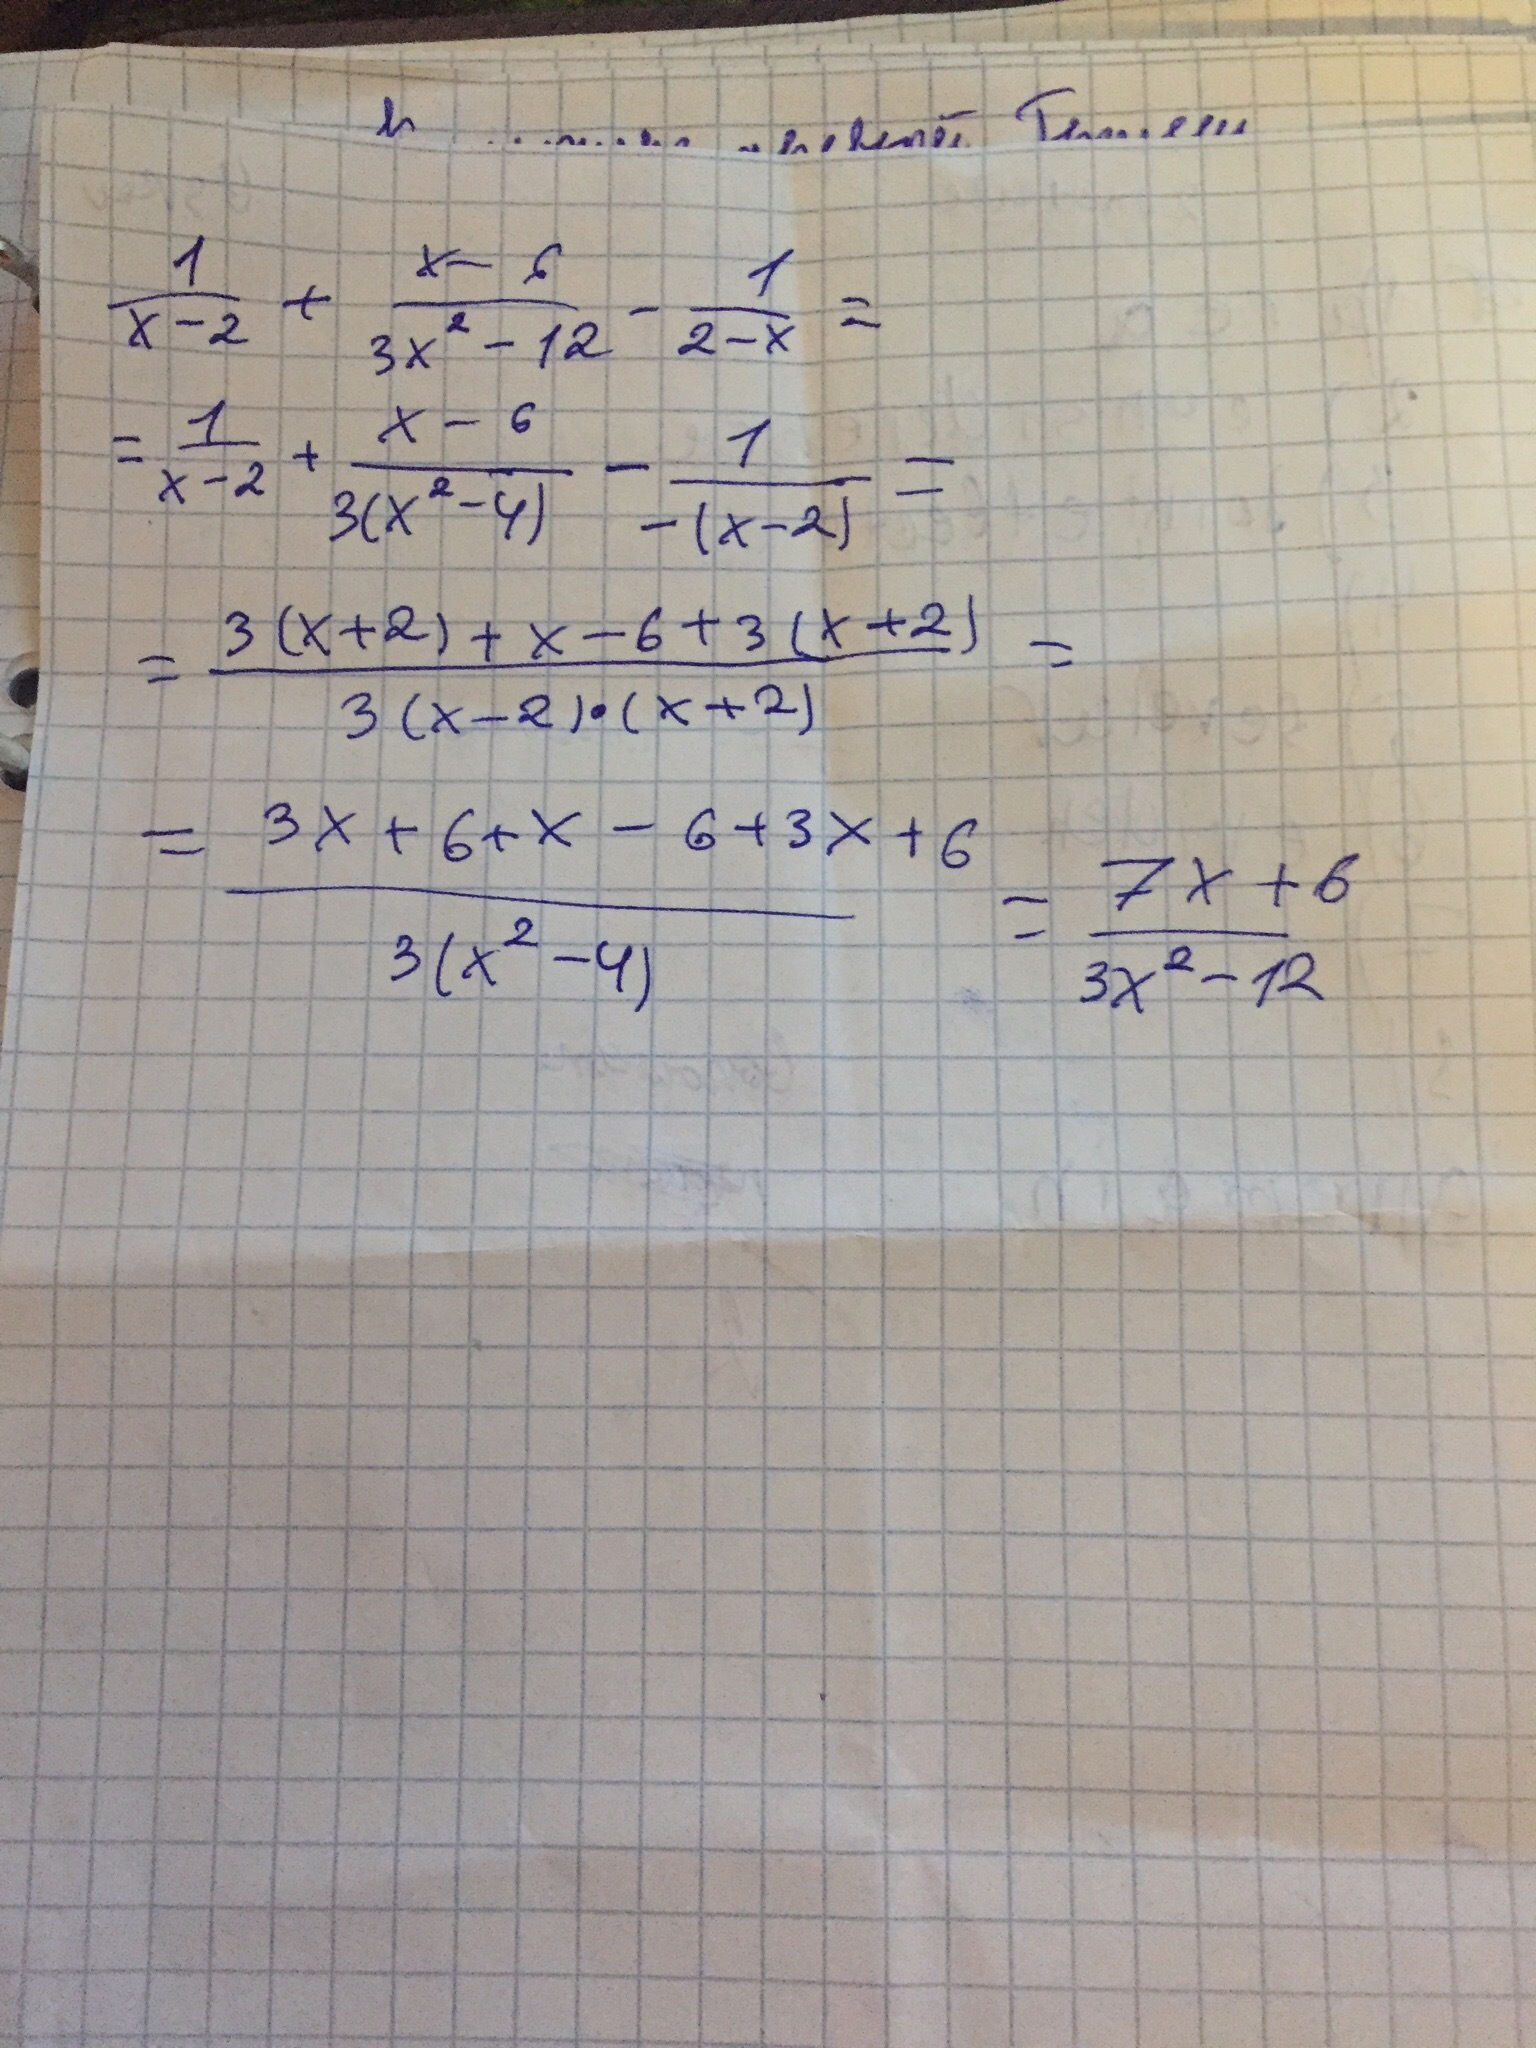 1/(x-2) + (x-6)/(3x²-12) - 1/(2-x) =
= 1/(x-2) + (x-6)/(3(x²-4)) - 1/(-(x-2)) =
= (3(x+2)+x-6+3(x+2))/(3(x-2)·(x+2)) =
= (3x+6+x-6+3x+6)/(3(x²-4)) = (7x+6)/(3x²-12)